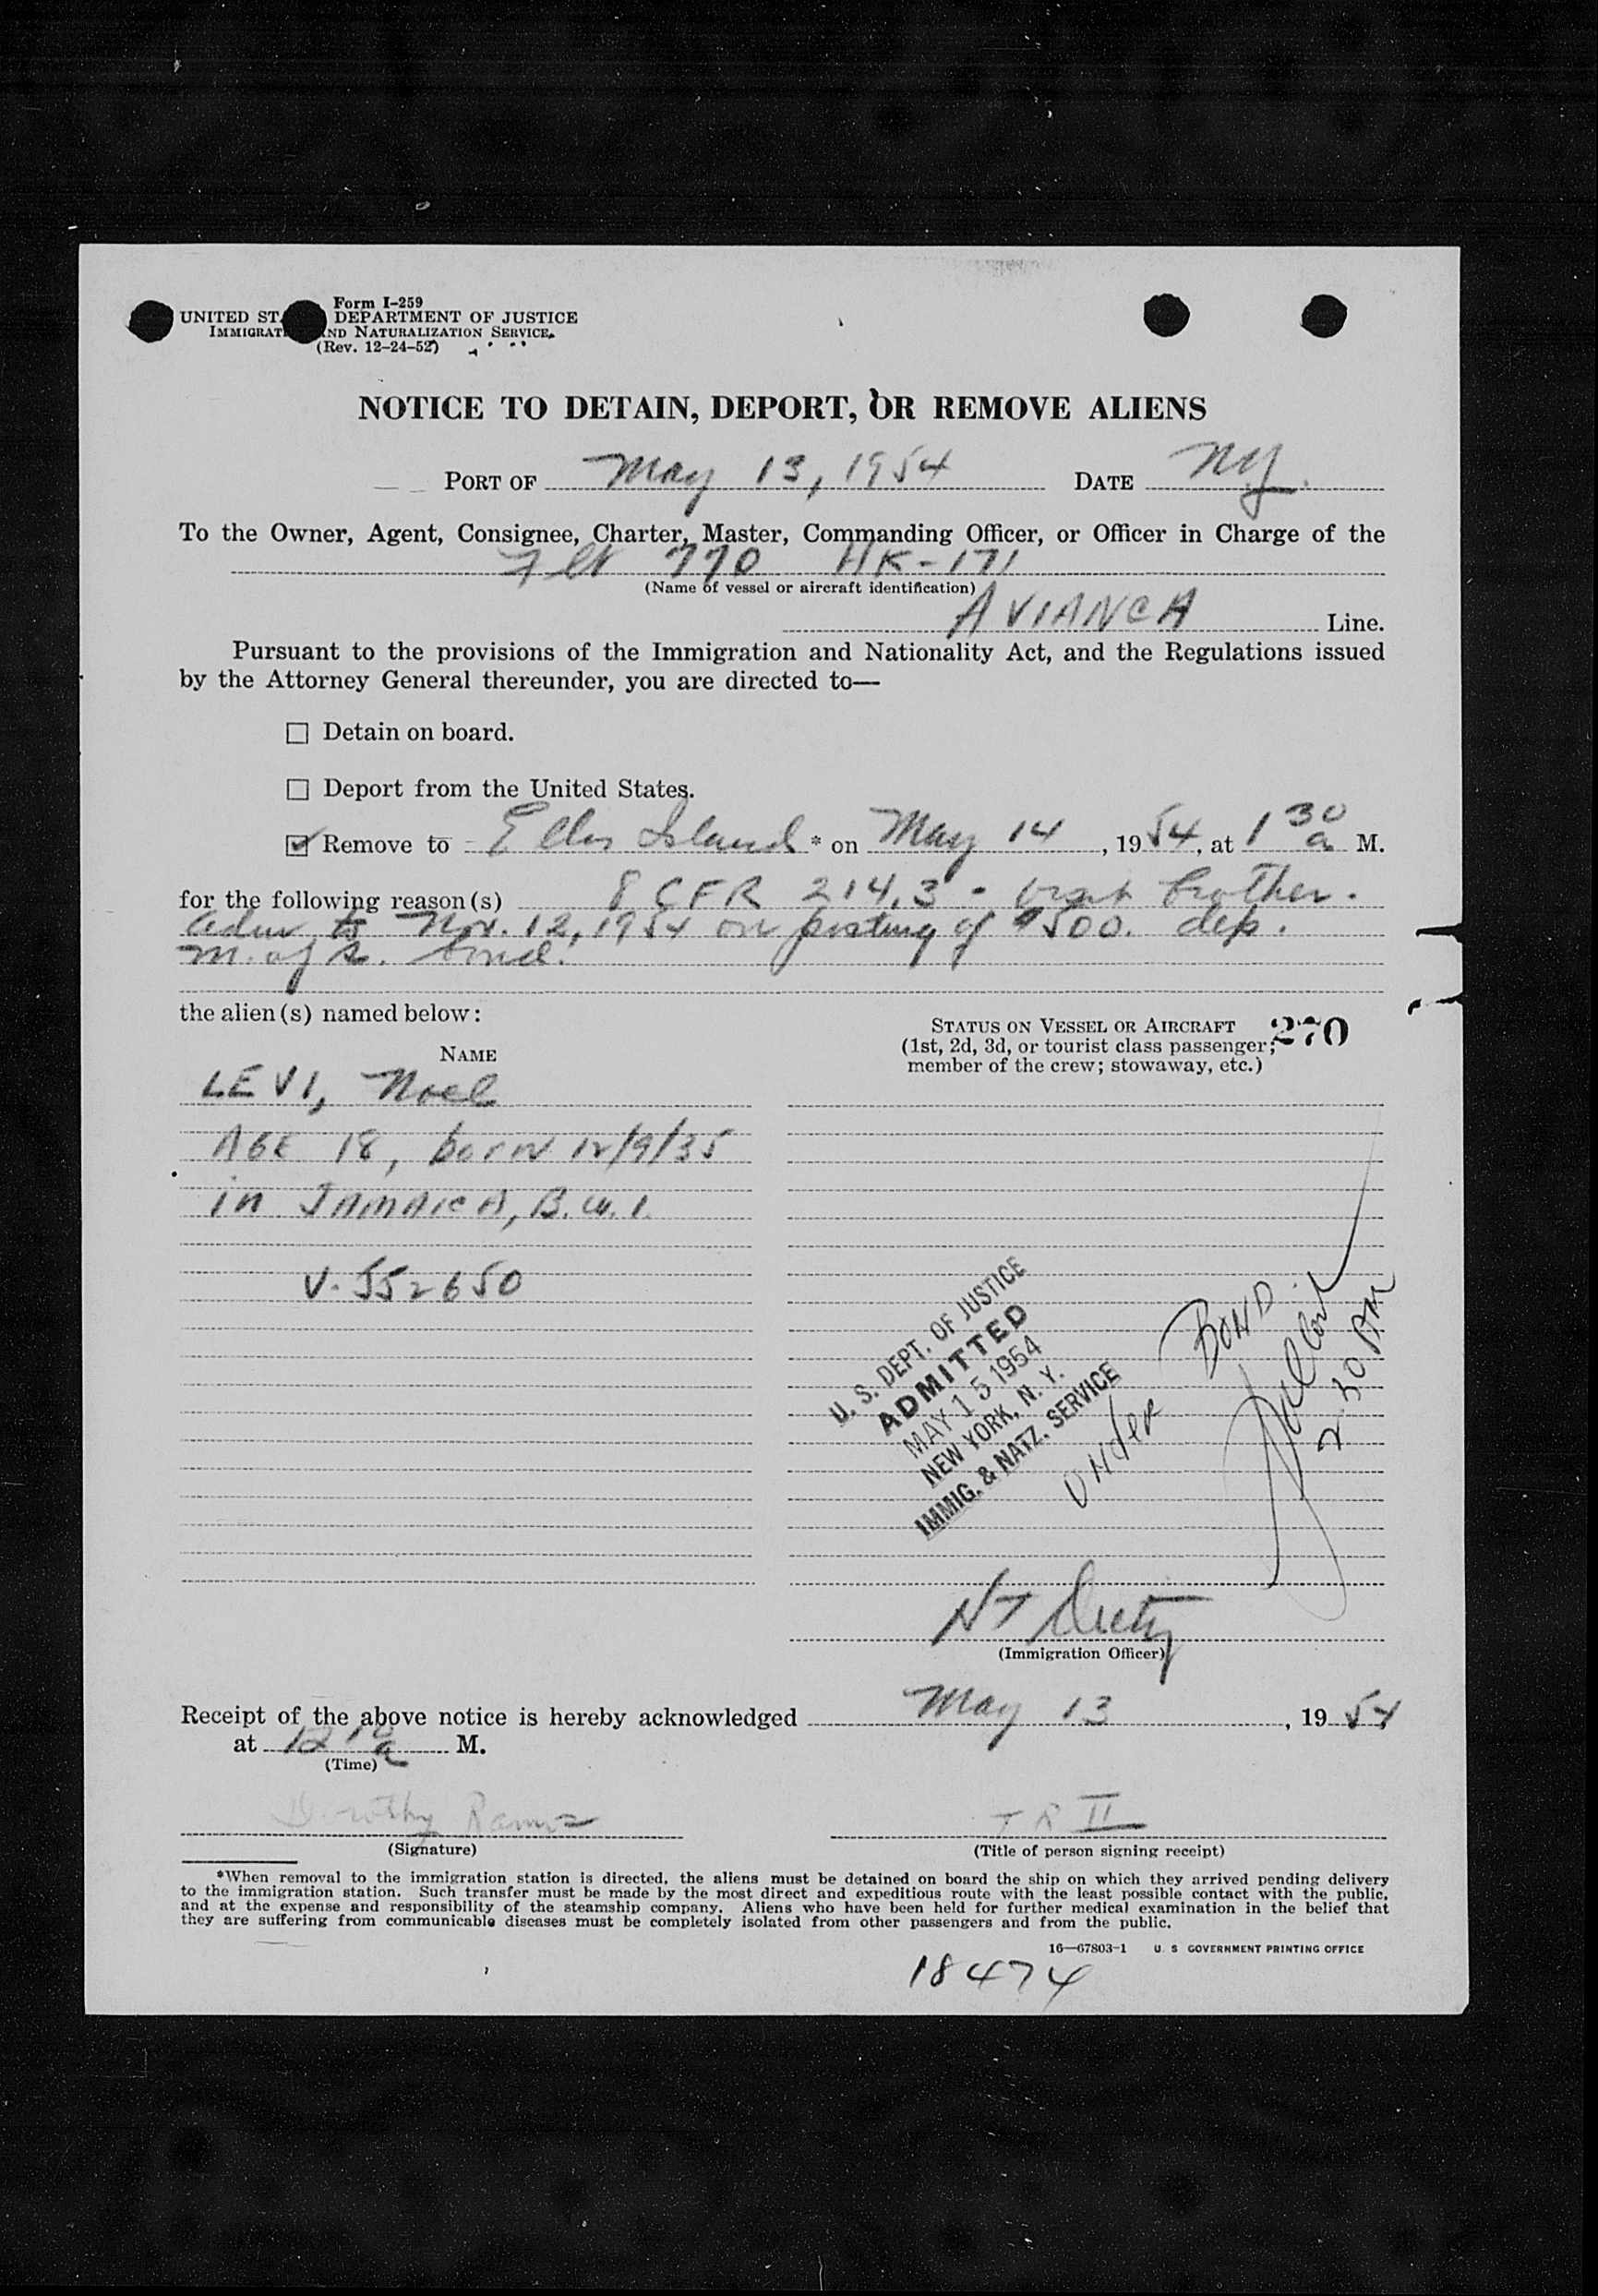 Form I-259
UNITED ST DEPARTMENT OF JUSTICE
IMMIGRAT ND NATURALIZATION SERVICE
(Rev. 12-24-52)
NOTICE TO DETAIN, DEPORT, OR REMOVE ALIENS
PORT OF May 13, 1954 DATE NY.
To the Owner, Agent, Consignee, Charter, Master, Commanding Officer, or Officer in Charge of the
Flt 770 HK-171
(Name of vessel or aircraft identification)
AVIANCA Line.
Pursuant to the provisions of the Immigration and Nationality Act, and the Regulations issued
by the Attorney General thereunder, you are directed to—
☐ Detain on board.
☐ Deport from the United States.
☑ Remove to Ellis Island * on May 14, 1954, at 1 30 a M.
for the following reason(s) 8 CFR 214.3 - visit brother.
adm to Nov. 12, 1954 on posting of $500. dep.
m. of s. bond.
the alien(s) named below:
STATUS ON VESSEL OR AIRCRAFT 270
(1st, 2d, 3d, or tourist class passenger;
member of the crew; stowaway, etc.)
NAME
LEVI, Noel
AGE 18, born 12/9/35
in JAMAICA, B.W.I.
V-552650
U. S. DEPT. OF JUSTICE
ADMITTED
MAY 15 1954
NEW YORK, N. Y.
IMMIG. & NATZ. SERVICE
UNDER BOND
2 30 PM
HT
(Immigration Officer)
Receipt of the above notice is hereby acknowledged May 13, 1954
at 12 10 a M.
(Time)
Dorothy
TR II
(Signature)
(Title of person signing receipt)
*When removal to the immigration station is directed, the aliens must be detained on board the ship on which they arrived pending delivery
to the immigration station. Such transfer must be made by the most direct and expeditious route with the least possible contact with the public,
and at the expense and responsibility of the steamship company. Aliens who have been held for further medical examination in the belief that
they are suffering from communicable diseases must be completely isolated from other passengers and from the public.
16—67803-1 U. S. GOVERNMENT PRINTING OFFICE
18474